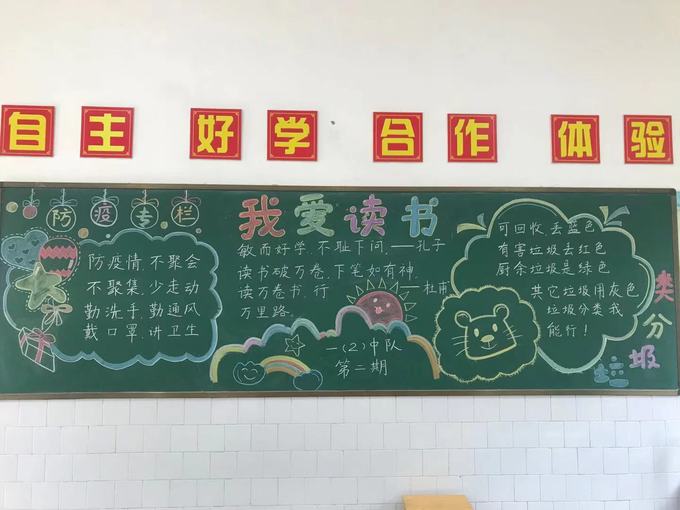 自主 好学 合作 体验
防疫专栏
防疫情、不聚会
不聚集、少走动
勤洗手、勤通风
戴口罩、讲卫生
我爱读书
敏而好学、不耻下问、——孔子
读书破万卷、下笔如有神、
——杜甫
读万卷书、行
万里路、
一(2)中队
第二期
可回收丢蓝色
有害垃圾去红色
厨余垃圾是绿色
其它垃圾用灰色
垃圾分类我
能行!
垃圾
分类